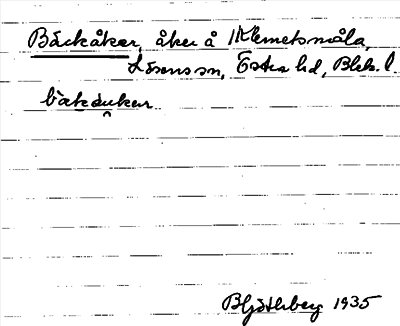 Bäckåker, åker å Klemetsmåla,
Lösens sn, Östra hd, Blek. l.
bækåuker
Bj Göthberg 1935